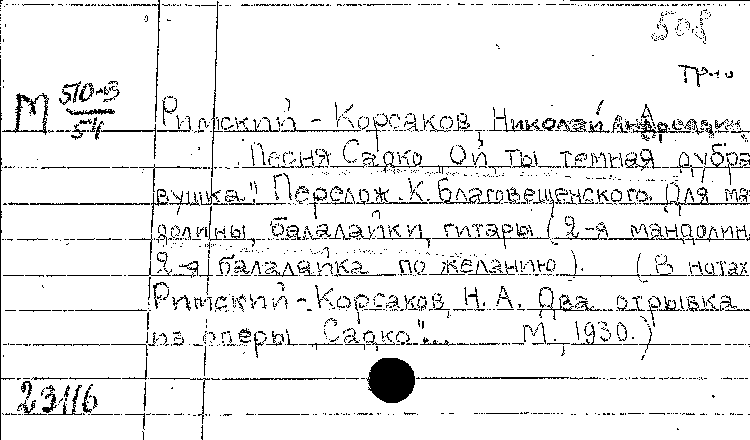 508
М 510-3
54
Римский-Корсаков, Николай
Песня Садко „Ой, ты темная дубра
вушка". Перелож. К. Благовещенского. Для ма
долины, балалайки, гитары (2-я мандолин
2-я балалайка по желанию). (В нотах
Римский-Корсаков, Н. А. Два отрывка
из оперы „Садко"... М., 1930.)
23116